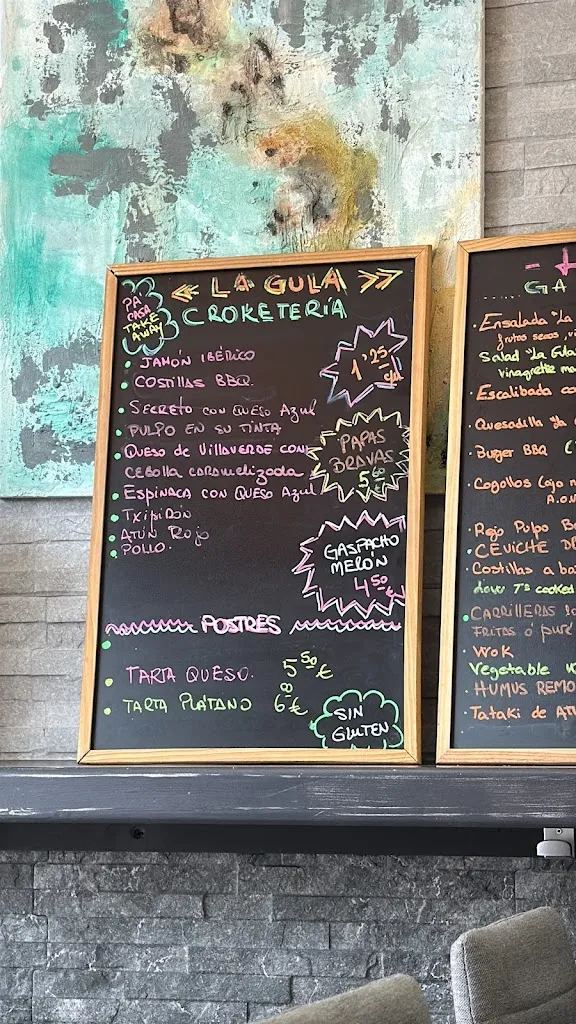 PA'
CASA
TAKE
AWAY
<< LA GULA >>
CROKETERÍA
JAMÓN IBÉRICO
COSTILLAS BBQ
1'25
c/u
SECRETO CON QUESO AZUL
PULPO EN SU TINTA
QUESO DE VILLAVERDE CON
CEBOLLA CARAMELIZADA
ESPINACA CON QUESO AZUL
TXIPIRÓN
ATÚN ROJO
POLLO.
PAPAS
BRAVAS
5 60
GASPACHO
MELÓN
4 50
POSTRES
TARTA QUESO. 5 50 €
TARTA PLÁTANO 6 00 €
SIN
GLUTEN
GA
Ensalada "La
frutos secos, vi
Salad "La Gula
vinagrette
Escalibada co
Quesadilla "La
Burger BBQ
Cogollos (ajo
Rejo Pulpo B
CEVICHE DE
Costillas a ba
slow Tª cooked
CARRILLERAS
FRITAS ó puré
WOK
Vegetable
HUMUS REMO
Tataki de AT